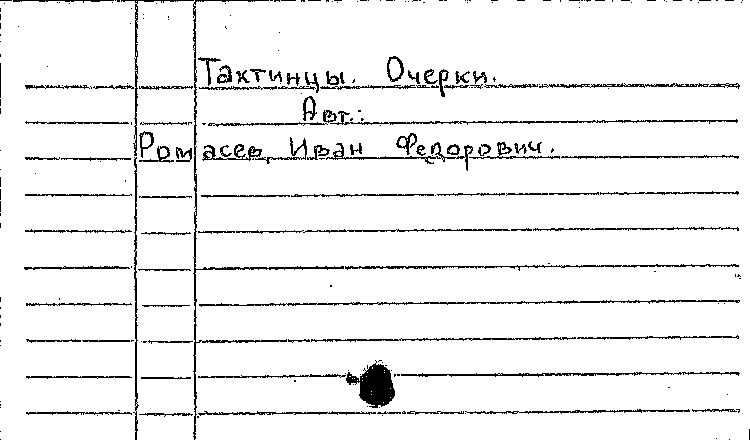 Тактинцы. Очерки.
Авт.:
Ромасев, Иван Федорович.